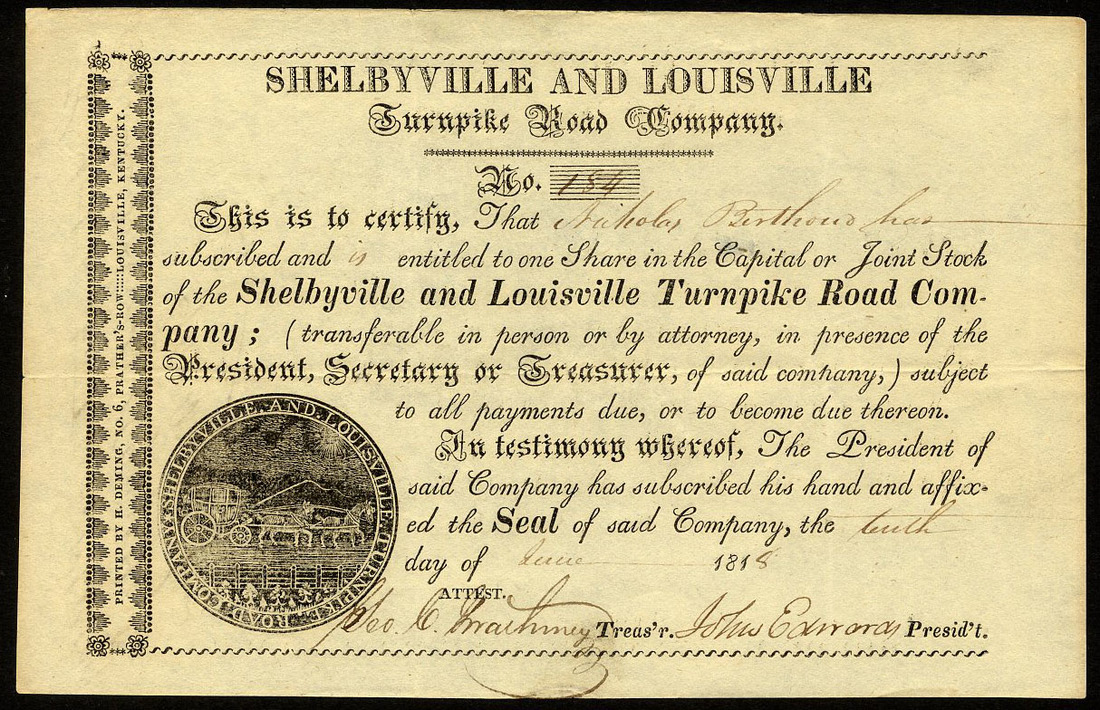 SHELBYVILLE AND LOUISVILLE
Turnpike Road Company.
No. 184
This is to certify, That Nicholas Berthoud has
subscribed and is entitled to one Share in the Capital or Joint Stock
of the Shelbyville and Louisville Turnpike Road Com-
pany; (transferable in person or by attorney, in presence of the
President, Secretary or Treasurer, of said company,) subject
to all payments due, or to become due thereon.
In testimony whereof, The President of
said Company has subscribed his hand and affix-
ed the Seal of said Company, the tenth
day of June 1818
ATTEST.
Geo. C. Gwathmey Treas'r. John Edwards Presid't.
SHELBYVILLE AND LOUISVILLE TURNPIKE ROAD COMPANY
PRINTED BY H. DEMING, NO. 6, PRATHER'S-ROW:::::LOUISVILLE, KENTUCKY.